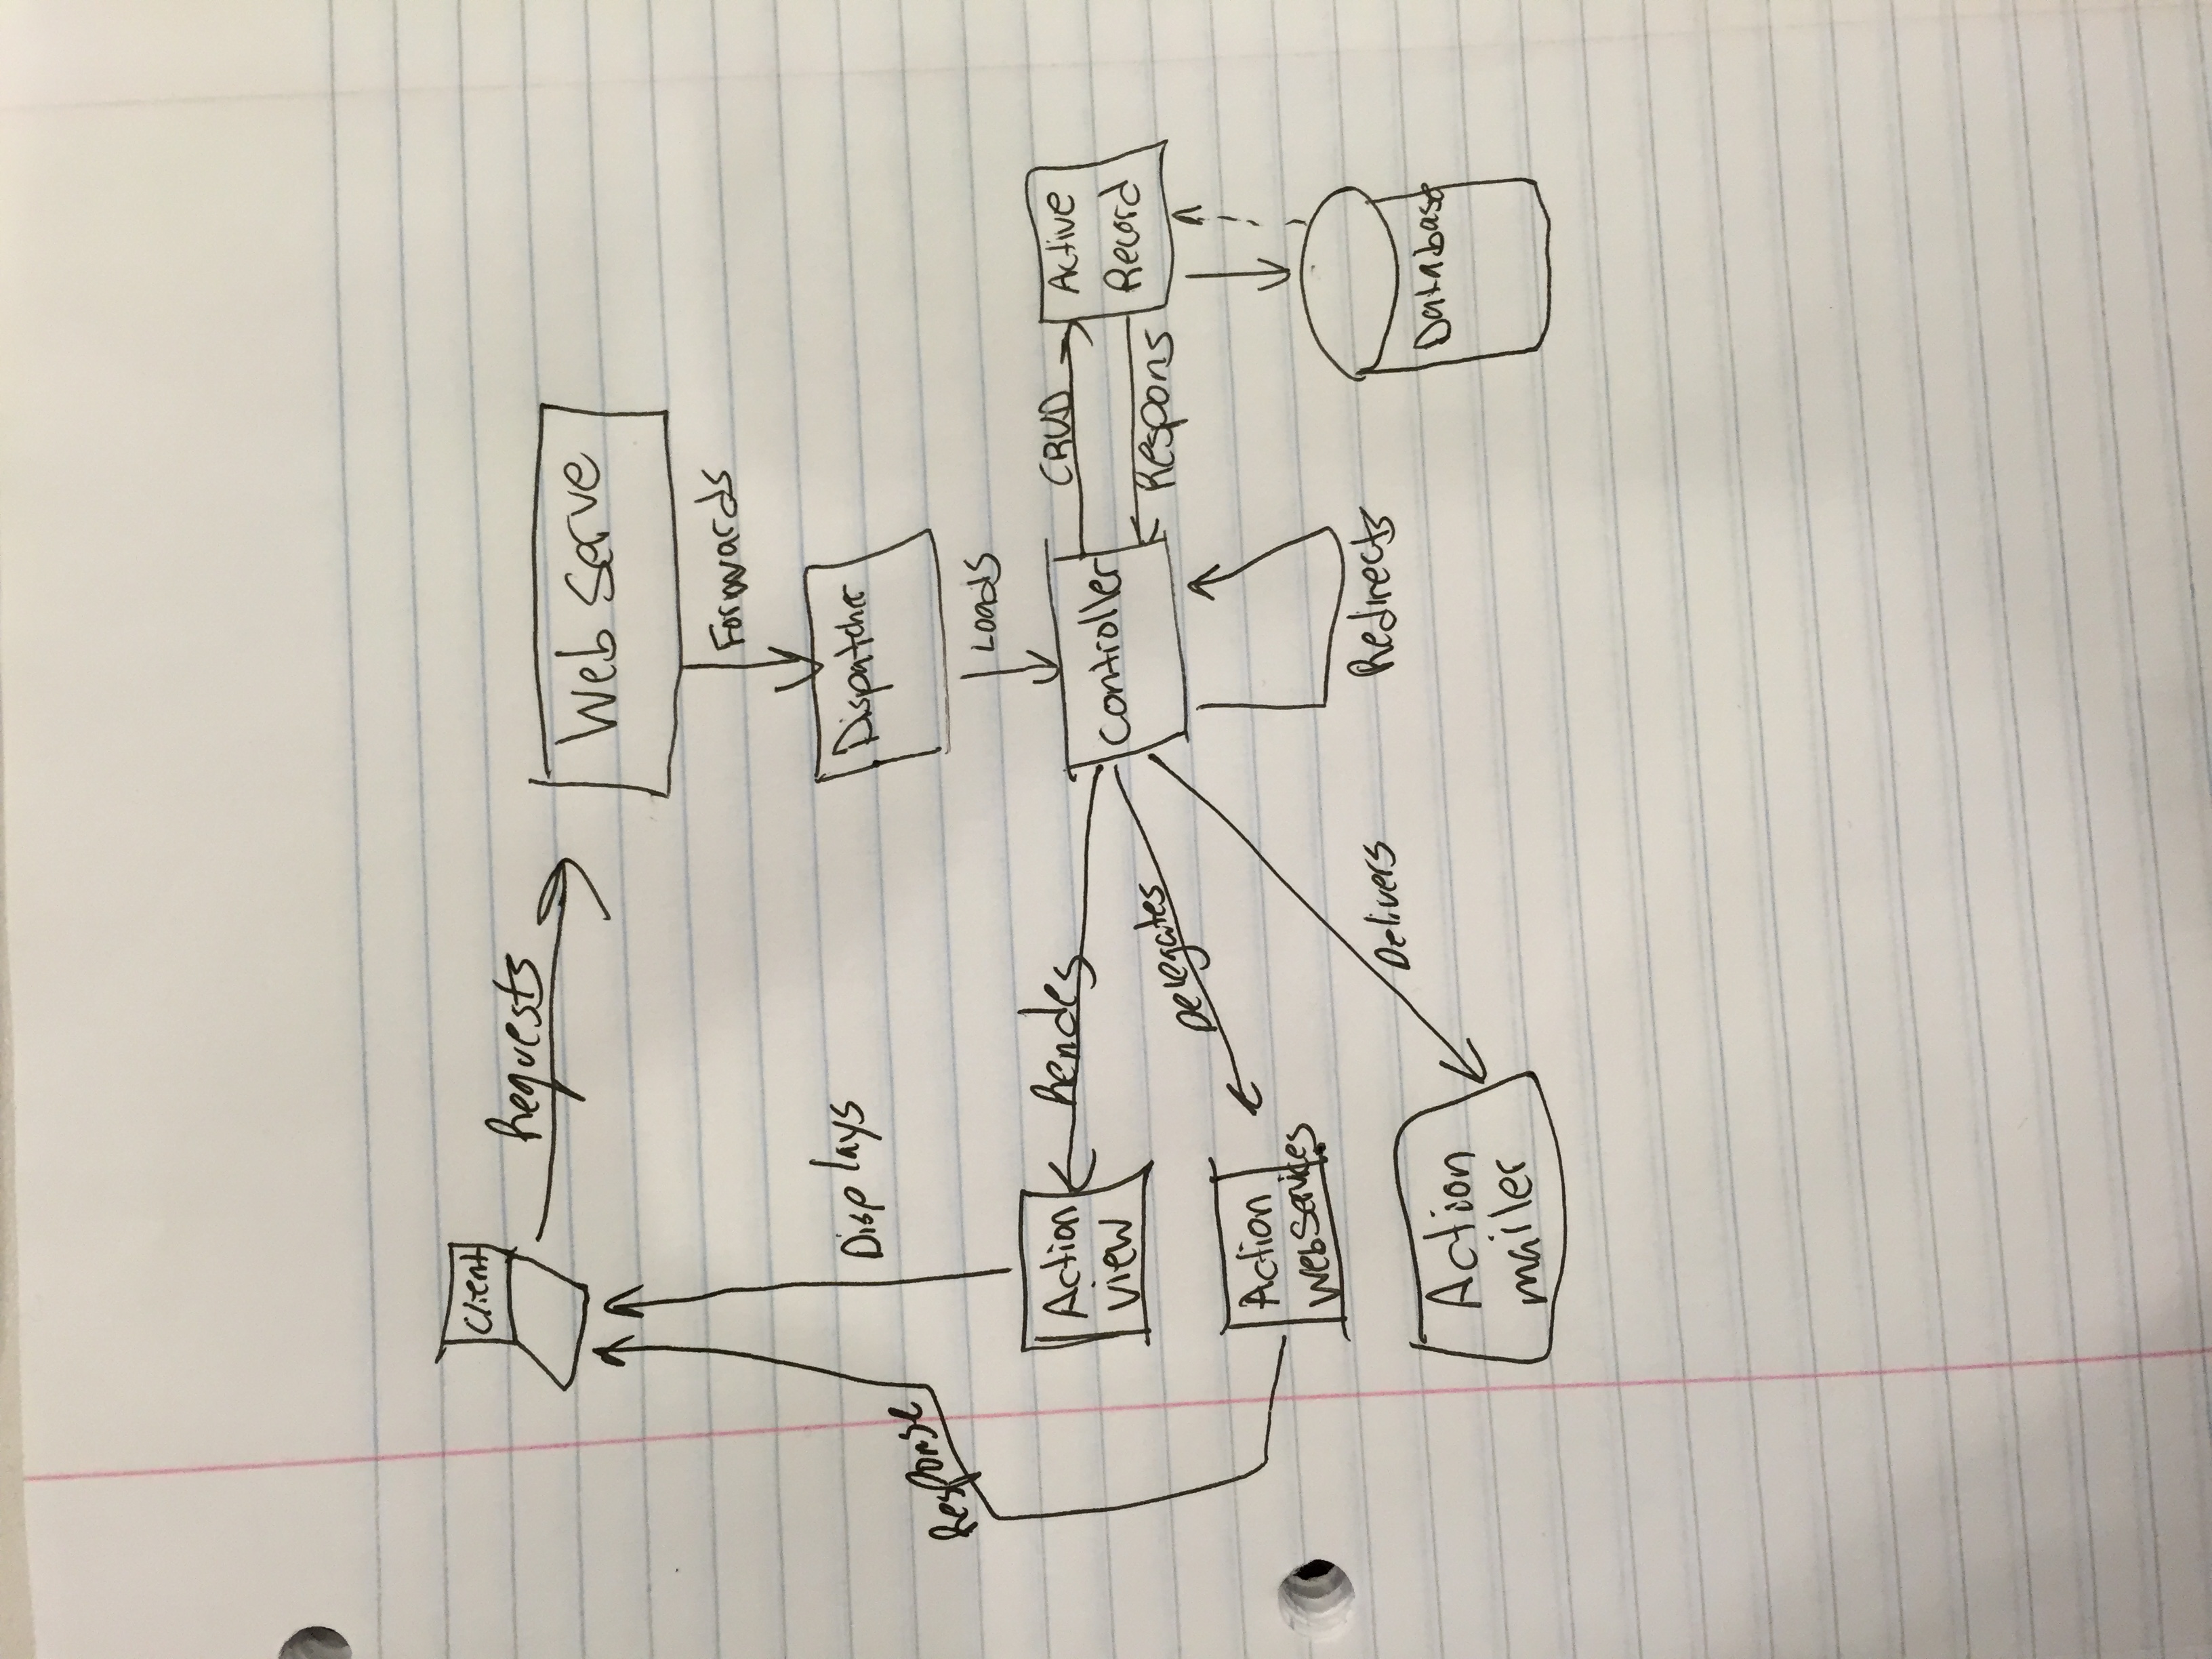 Client
Requests
Web Serve
Forwards
Dispatcher
Displays
Response
Loads
Action
view
Rendes
Controller
CRUD
Active
Record
Respons
Delegates
Action
Web Services
Delivers
Redirects
Action
mailer
Database